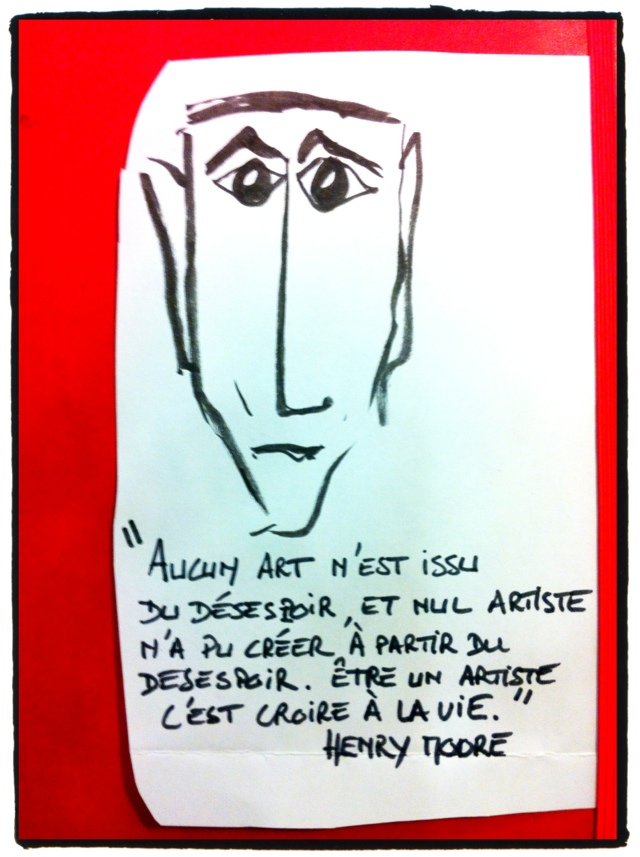 "AUCUN ART N'EST ISSU
DU DÉSESPOIR, ET NUL ARTISTE
N'A PU CRÉER À PARTIR DU
DESESPOIR. ÊTRE UN ARTISTE
C'EST CROIRE À LA VIE."
HENRY MOORE